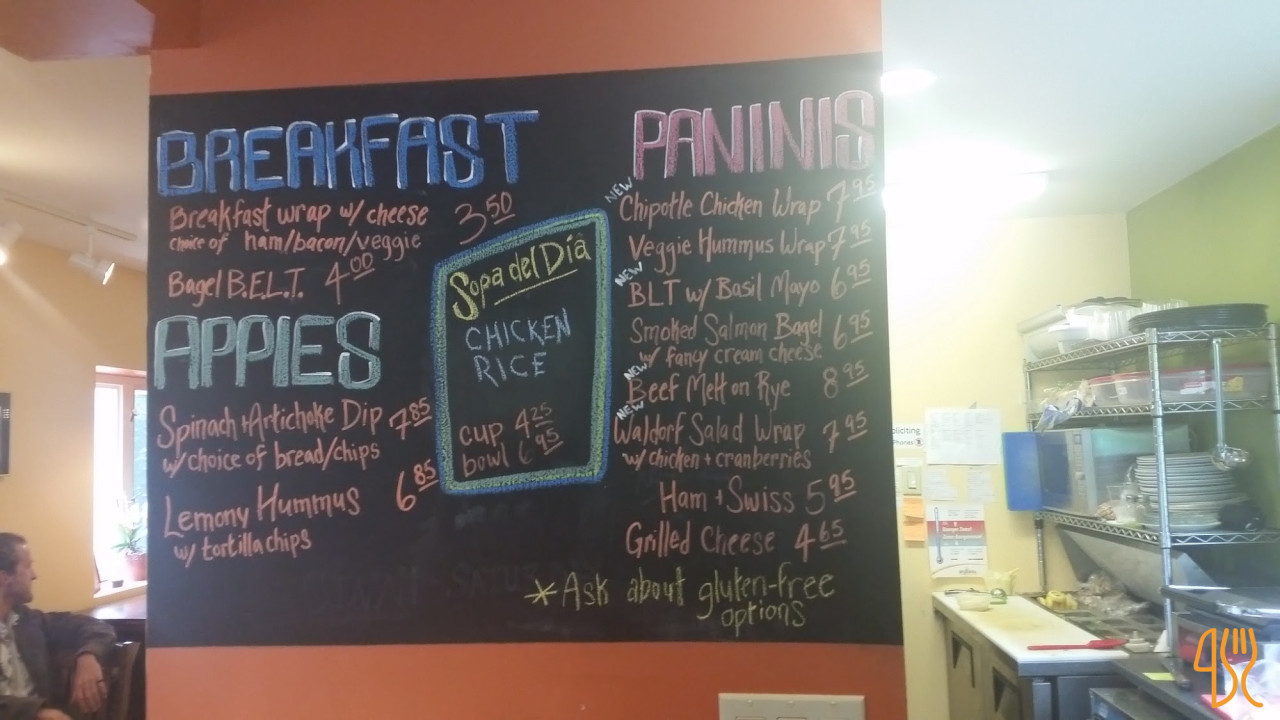 BREAKFAST
Breakfast wrap w/ cheese 3.50
choice of ham/bacon/veggie
Bagel B.E.L.T. 4.00
APPIES
Spinach + Artichoke Dip 7.85
w/ choice of bread/chips
Lemony Hummus 6.85
w/ tortilla chips
Sopa del Día
CHICKEN
RICE
cup 4.25
bowl 6.95
PANINIS
NEW
Chipotle Chicken Wrap 7.95
Veggie Hummus Wrap 7.95
NEW
BLT w/ Basil Mayo 6.95
Smoked Salmon Bagel 6.95
w/ fancy cream cheese
NEW
Beef Melt on Rye 8.95
NEW
Waldorf Salad Wrap 7.95
w/ chicken + cranberries
Ham + Swiss 5.95
Grilled Cheese 4.65
*Ask about gluten-free
options